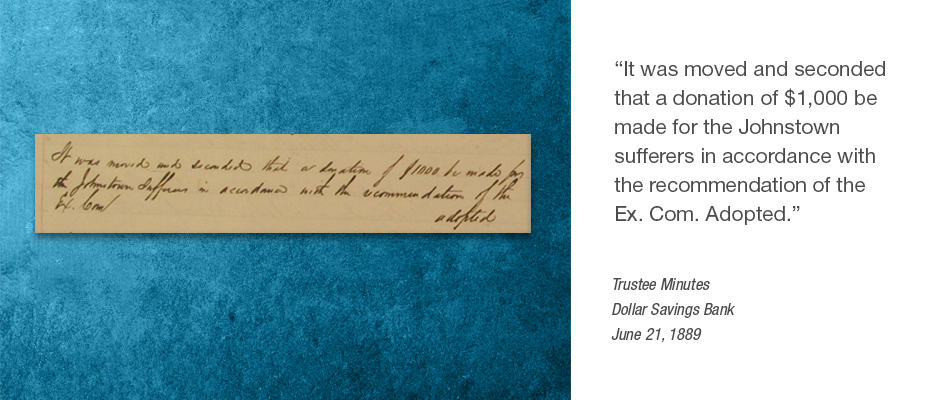 It was moved and seconded that a donation of $1000 be made for
the Johnstown Sufferers in accordance with the recommendation of the
Ex. Com
adopted
“It was moved and seconded
that a donation of $1,000 be
made for the Johnstown
sufferers in accordance with
the recommendation of the
Ex. Com. Adopted.”
Trustee Minutes
Dollar Savings Bank
June 21, 1889